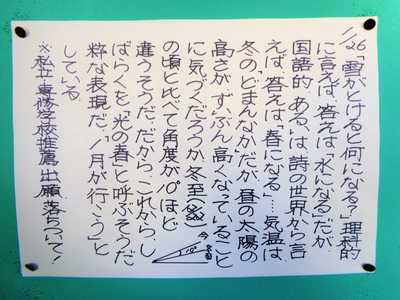 1/26「雪がとけると何になる?」理科的
に言えば、答えは「水になる」だが、
国語的、あるいは詩の世界から言
えば、答えは「春になる」……気温は
冬の"どまんなか"だが、昼の太陽の
高さが、ずいぶん高くなっていること
に気づくだろうか、冬至(12/22)
の頃と比べて角度が10°ほど
違うそうだ。だから、これから、し
ばらくを「光の春」と呼ぶそうだ
粋な表現だ。「1月が行こう」と
している
※私立・専修学校推薦出願落ちついて!
今
10°
冬至